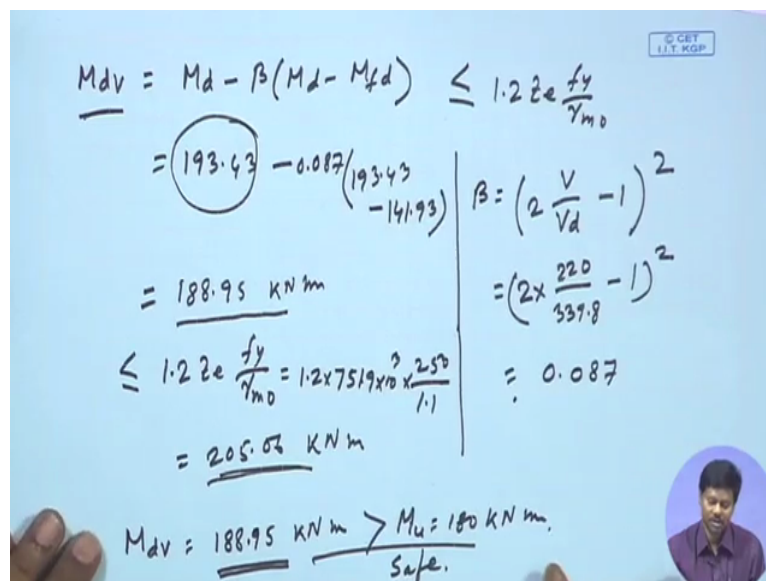 © CET
I.I.T. KGP
Mdv = Md - β(Md - Mfd) ≤ 1.2 Ze fy/γm0
= 193.43 - 0.087(193.43 - 141.93)
= 188.95 KN m
≤ 1.2 Ze fy/γm0 = 1.2 x 751.9 x 10^3 x 250/1.1
= 205.06 KN m
β = (2 V/Vd - 1)^2
= (2 x 220/339.8 - 1)^2
= 0.087
Mdv = 188.95 KN m > Mu = 180 KN m.
Safe.